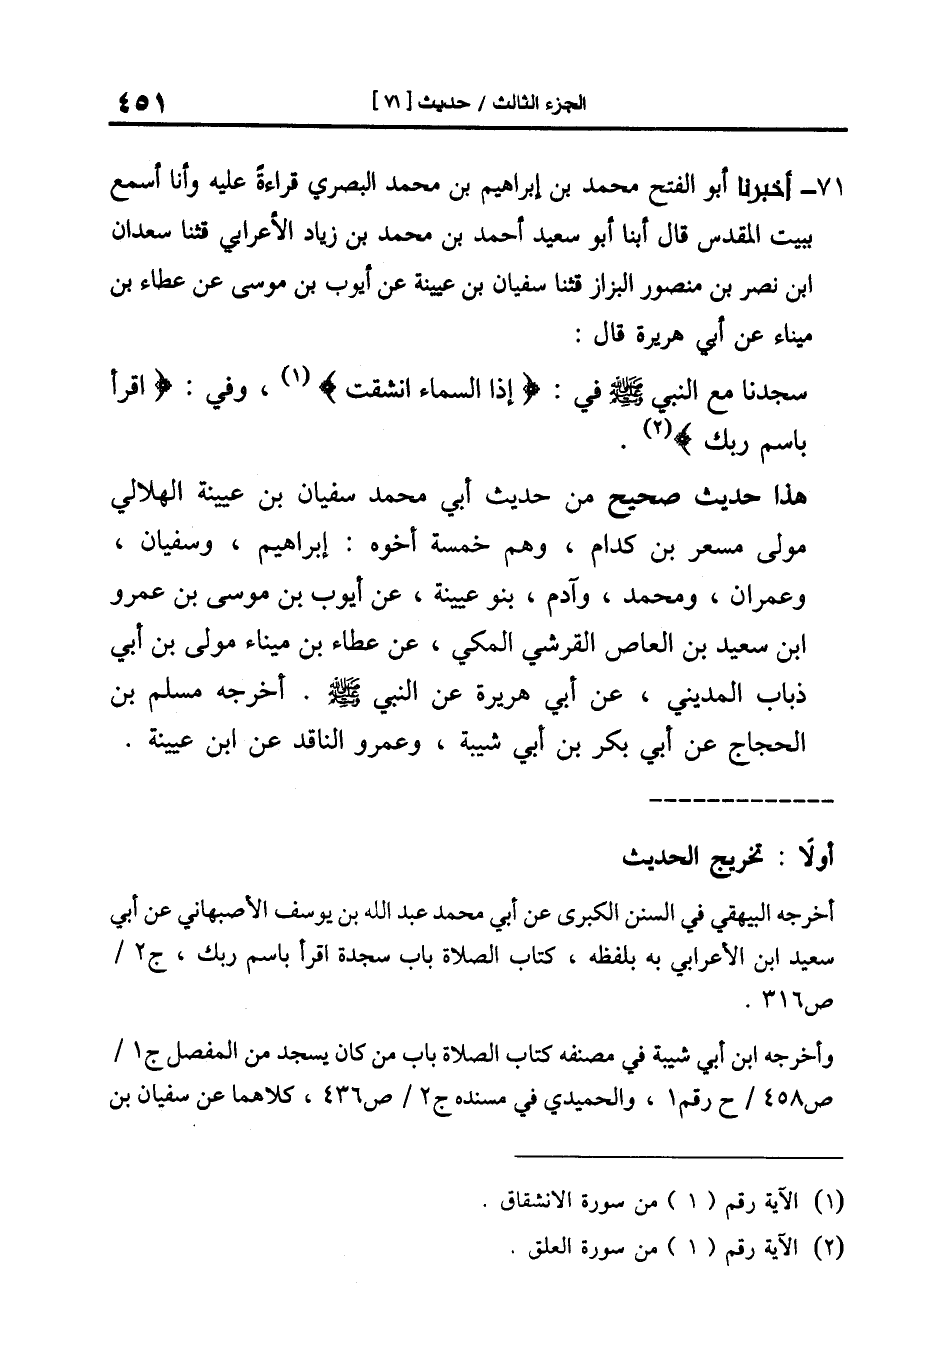 الجزء الثالث / حديث [ ٧١ ] ٤٥١
٧١ـ أخبرنا أبو الفتح محمد بن إبراهيم بن محمد البصري قراءةً عليه وأنا أسمع
ببيت المقدس قال أبنا أبو سعيد أحمد بن محمد بن زياد الأعرابي قثنا سعدان
ابن نصر بن منصور البزاز قثنا سفيان بن عيينة عن أيوب بن موسى عن عطاء بن
ميناء عن أبي هريرة قال :
سجدنا مع النبي ﷺ في : ﴿ إذا السماء انشقت ﴾ (١) ، وفي : ﴿ اقرأ
باسم ربك ﴾(٢) .
هذا حديث صحيح من حديث أبي محمد سفيان بن عيينة الهلالي
مولى مسعر بن كدام ، وهم خمسة أخوه : إبراهيم ، وسفيان ،
وعمران ، ومحمد ، وآدم ، بنو عيينة ، عن أيوب بن موسى بن عمرو
ابن سعيد بن العاص القرشي المكي ، عن عطاء بن ميناء مولى بن أبي
ذباب المديني ، عن أبي هريرة عن النبي ﷺ . أخرجه مسلم بن
الحجاج عن أبي بكر بن أبي شيبة ، وعمرو الناقد عن ابن عيينة .
أولًا : تخريج الحديث
أخرجه البيهقي في السنن الكبرى عن أبي محمد عبد الله بن يوسف الأصبهاني عن أبي
سعيد ابن الأعرابي به بلفظه ، كتاب الصلاة باب سجدة اقرأ باسم ربك ، ج٢ /
ص٣١٦ .
وأخرجه ابن أبي شيبة في مصنفه كتاب الصلاة باب من كان يسجد من المفصل ج١ /
ص٤٥٨ / ح رقم١ ، والحميدي في مسنده ج٢ / ص٤٣٦ ، كلاهما عن سفيان بن
(١) الآية رقم ( ١ ) من سورة الانشقاق .
(٢) الآية رقم ( ١ ) من سورة العلق .